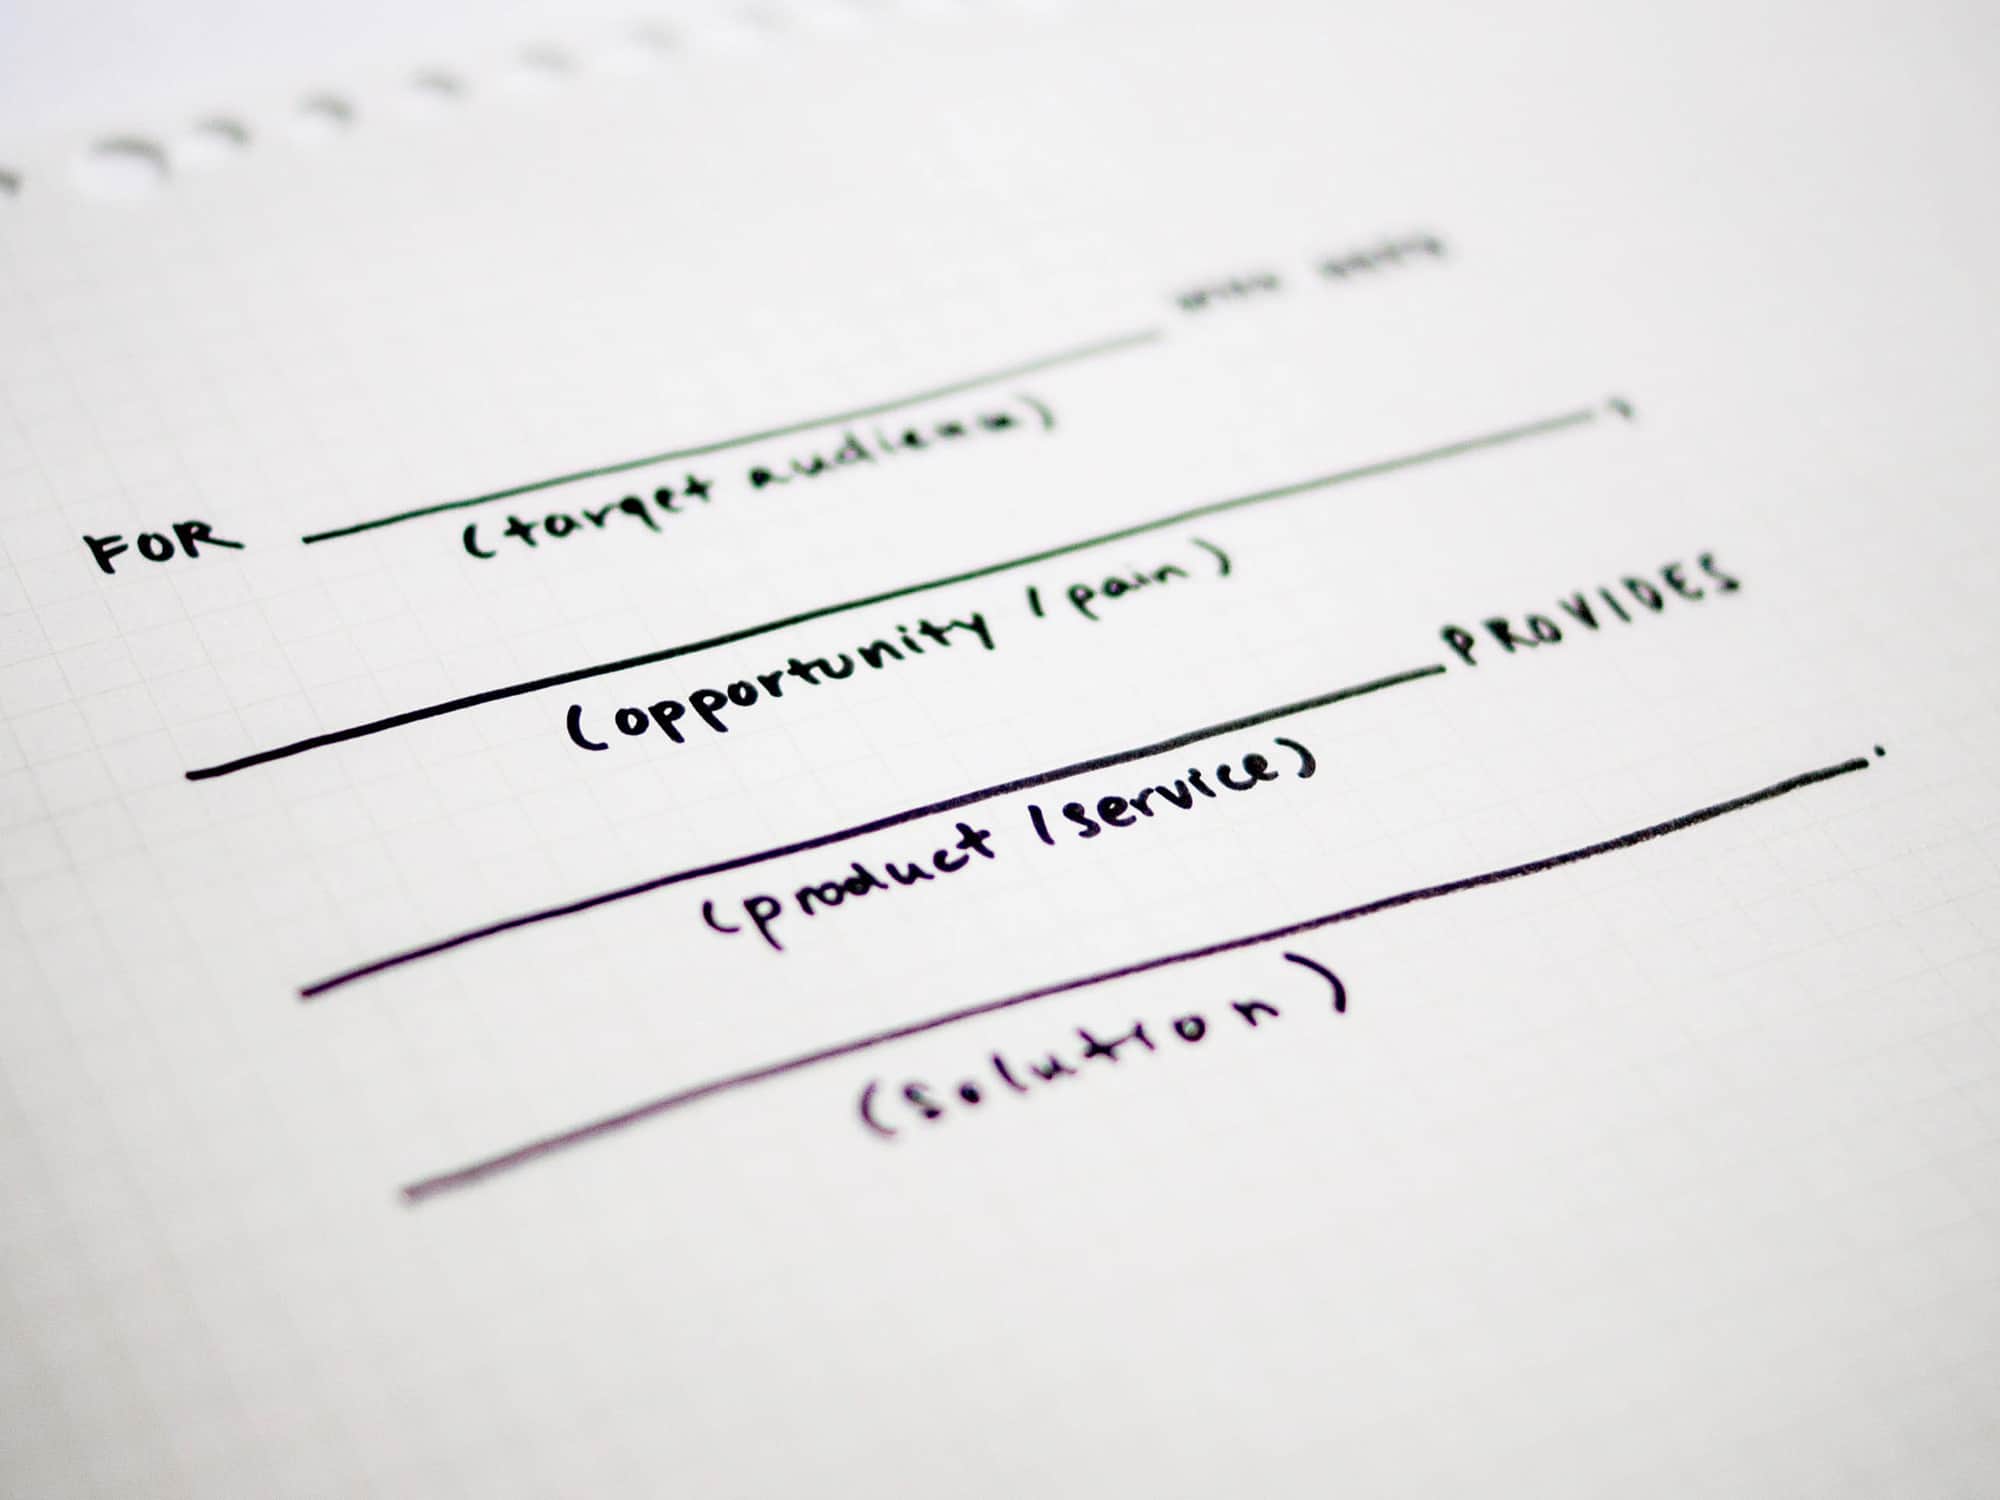 FOR ____________
(target audience)
____________,
(opportunity / pain)
____________ PROVIDES
(product / service)
____________.
(solution)